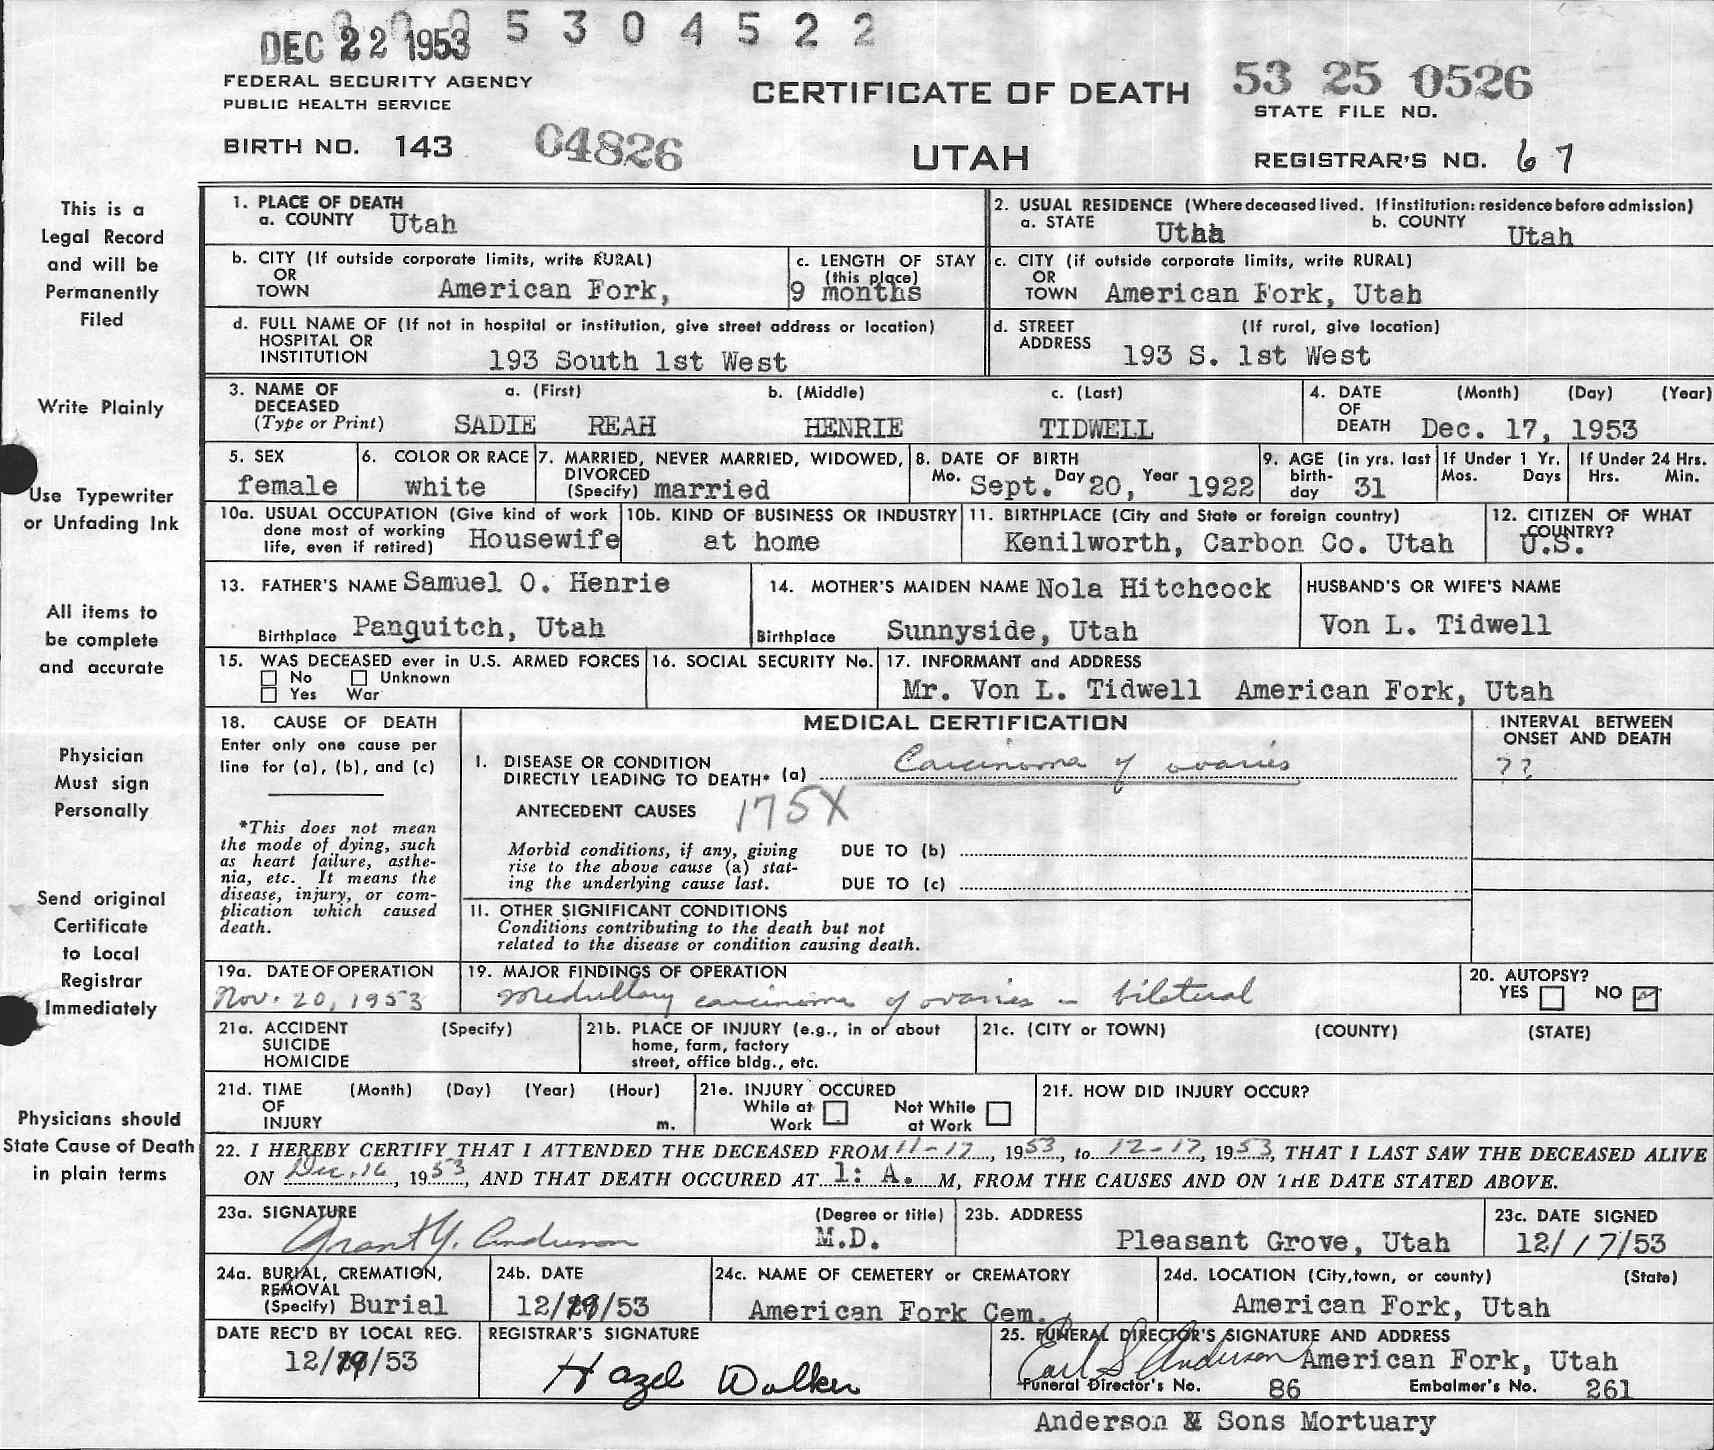 DEC 22 1953 5304522
FEDERAL SECURITY AGENCY
PUBLIC HEALTH SERVICE
CERTIFICATE OF DEATH
53 25 0526
STATE FILE NO.
BIRTH NO. 143 04826
UTAH
REGISTRAR'S NO. 67
This is a
Legal Record
and will be
Permanently
Filed
Write Plainly
Use Typewriter
or Unfading Ink
All items to
be complete
and accurate
Physician
Must sign
Personally
Send original
Certificate
to Local
Registrar
Immediately
Physicians should
State Cause of Death
in plain terms
1. PLACE OF DEATH
a. COUNTY Utah
2. USUAL RESIDENCE (Where deceased lived. If institution: residence before admission)
a. STATE Utah b. COUNTY Utah
b. CITY (If outside corporate limits, write RURAL)
OR
TOWN American Fork,
c. LENGTH OF STAY
(this place)
9 months
c. CITY (if outside corporate limits, write RURAL)
OR
TOWN American Fork, Utah
d. FULL NAME OF (If not in hospital or institution, give street address or location)
HOSPITAL OR
INSTITUTION 193 South 1st West
d. STREET (If rural, give location)
ADDRESS 193 S. 1st West
3. NAME OF a. (First) b. (Middle) c. (Last)
DECEASED
(Type or Print) SADIE REAH HENRIE TIDWELL
4. DATE (Month) (Day) (Year)
OF
DEATH Dec. 17, 1953
5. SEX
female
6. COLOR OR RACE
white
7. MARRIED, NEVER MARRIED, WIDOWED,
DIVORCED
(Specify) married
8. DATE OF BIRTH
Mo. Sept. Day 20, Year 1922
9. AGE (in yrs. last
birth-
day 31
If Under 1 Yr.
Mos. Days
If Under 24 Hrs.
Hrs. Min.
10a. USUAL OCCUPATION (Give kind of work
done most of working
life, even if retired) Housewife
10b. KIND OF BUSINESS OR INDUSTRY
at home
11. BIRTHPLACE (City and State or foreign country)
Kenilworth, Carbon Co. Utah
12. CITIZEN OF WHAT
COUNTRY?
U.S.
13. FATHER'S NAME Samuel O. Henrie
Birthplace Panguitch, Utah
14. MOTHER'S MAIDEN NAME Nola Hitchcock
Birthplace Sunnyside, Utah
HUSBAND'S OR WIFE'S NAME
Von L. Tidwell
15. WAS DECEASED ever in U.S. ARMED FORCES
No Unknown
Yes War
16. SOCIAL SECURITY No.
17. INFORMANT and ADDRESS
Mr. Von L. Tidwell American Fork, Utah
18. CAUSE OF DEATH
Enter only one cause per
line for (a), (b), and (c)
*This does not mean
the mode of dying, such
as heart failure, asthe-
nia, etc. It means the
disease, injury, or com-
plication which caused
death.
MEDICAL CERTIFICATION
INTERVAL BETWEEN
ONSET AND DEATH
I. DISEASE OR CONDITION
DIRECTLY LEADING TO DEATH* (a) Carcinoma of ovaries ??
ANTECEDENT CAUSES 175X
Morbid conditions, if any, giving
rise to the above cause (a) stat-
ing the underlying cause last.
DUE TO (b)
DUE TO (c)
II. OTHER SIGNIFICANT CONDITIONS
Conditions contributing to the death but not
related to the disease or condition causing death.
19a. DATE OF OPERATION
Nov. 20, 1953
19. MAJOR FINDINGS OF OPERATION
Medullary carcinoma of ovaries - bilateral
20. AUTOPSY?
YES NO
21a. ACCIDENT (Specify)
SUICIDE
HOMICIDE
21b. PLACE OF INJURY (e.g., in or about
home, farm, factory
street, office bldg., etc.
21c. (CITY or TOWN) (COUNTY) (STATE)
21d. TIME (Month) (Day) (Year) (Hour)
OF
INJURY m.
21e. INJURY OCCURED
While at Not While
Work at Work
21f. HOW DID INJURY OCCUR?
22. I HEREBY CERTIFY THAT I ATTENDED THE DECEASED FROM 11-17, 1953, to 12-17, 1953, THAT I LAST SAW THE DECEASED ALIVE
ON Dec. 16, 1953, AND THAT DEATH OCCURED AT 1: A. M, FROM THE CAUSES AND ON THE DATE STATED ABOVE.
23a. SIGNATURE (Degree or title)
Grant Y. Anderson M.D.
23b. ADDRESS
Pleasant Grove, Utah
23c. DATE SIGNED
12/17/53
24a. BURIAL, CREMATION,
REMOVAL
(Specify) Burial
24b. DATE
12/ /53
24c. NAME OF CEMETERY or CREMATORY
American Fork Cem.
24d. LOCATION (City, town, or county) (State)
American Fork, Utah
DATE REC'D BY LOCAL REG.
12/ /53
REGISTRAR'S SIGNATURE
Hazel Walker
25. FUNERAL DIRECTOR'S SIGNATURE AND ADDRESS
Earl S Anderson American Fork, Utah
Funeral Director's No. 86 Embalmer's No. 261
Anderson & Sons Mortuary